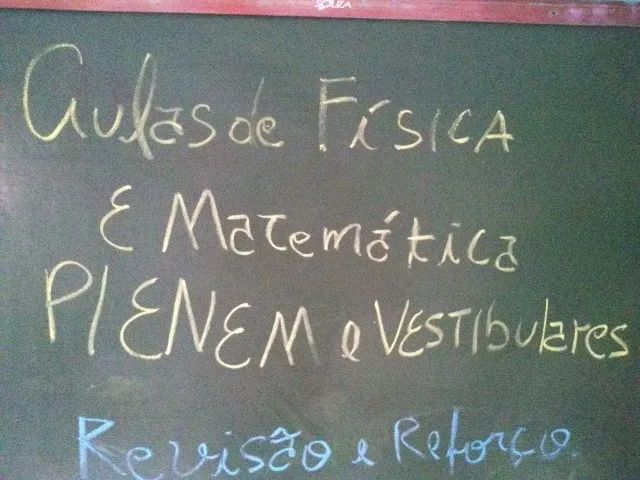 Aulas de Física
E Matemática
P/ ENEM e VESTIbulares
Revisão e Reforço.